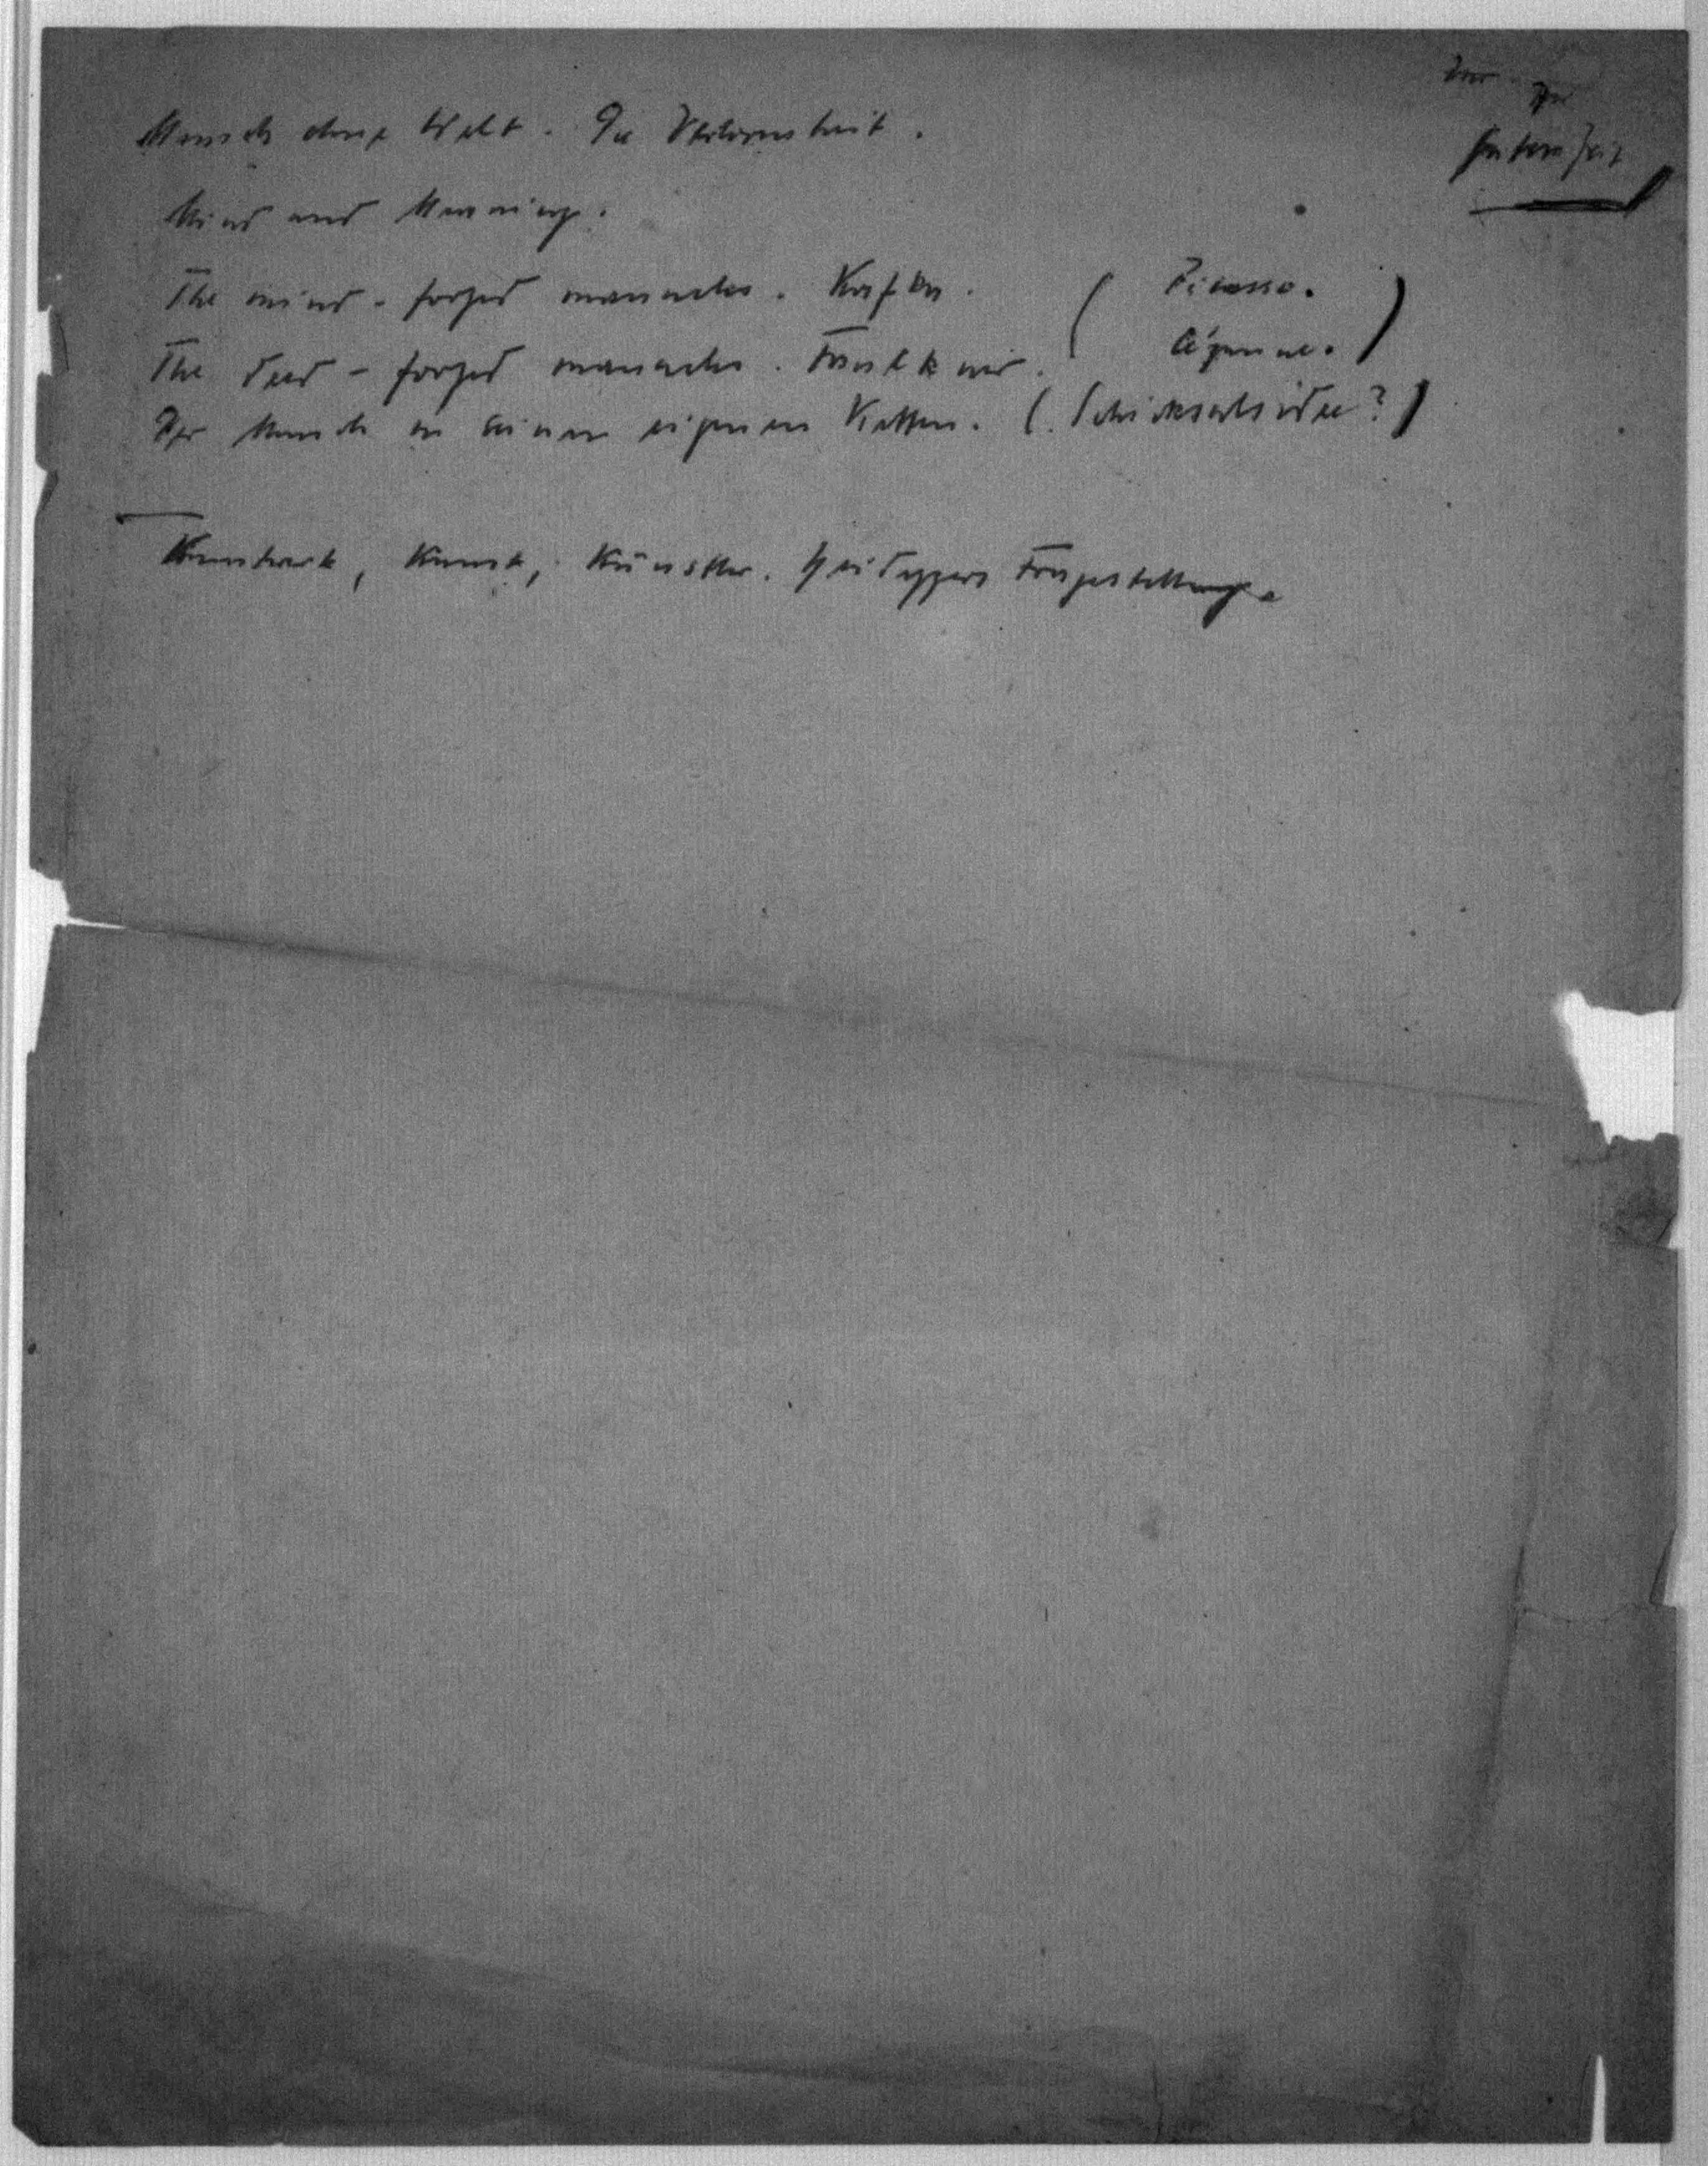 Mensch ohne Welt. Die Verlorenheit.
Mind and Meaning.
The mind-forged manacles. Kafka. ( Picasso.
The deed-forged manacles. Faulkner. Cézanne. )
Der Mensch in seinen eigenen Ketten. (Schicksalsidee?)
Kunstwerk, Kunst, Künstler. Heideggers Fragestellung.